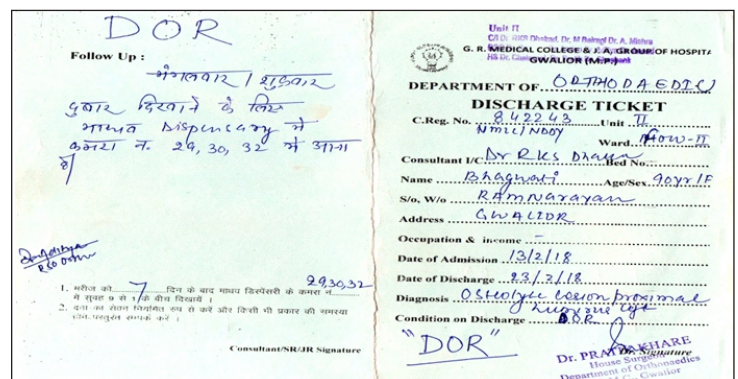 DOR
Follow Up :
मंगलवार / शुक्रवार
दुबार दिखाने के लिए
माधव Dispensary में
कमरा न. 29, 30, 32 में आना
है
29,30,32
1. मरीज को 7 दिन के बाद माधव डिस्पेंसरी के कमरा नं
में सुबह 9 से 1 के बीच दिखायें ।
2. दवा का सेवन नियमित रूप से करें और किसी भी प्रकार की समस्या
होने परतुरंत सम्पर्क करें ।
Consultant/SR/JR Signature
Unit II
C/I Dr. RKS Dhakad, Dr. M Bairagi Dr. A. Mishra
G. R. MEDICAL COLLEGE & J. A. GROUP OF HOSPITA
GWALIOR (M.P.)
DEPARTMENT OF ORTHOPAEDICS
DISCHARGE TICKET
C.Reg. No. 842243 Unit II
Ward
Consultant I/C Dr RKS Bed No.
Name Bhagwati Age/Sex 90yr/F
S/o, W/o RAMNARAYAN
Address GWALIOR
Occupation & income –
Date of Admission 13/2/18
Date of Discharge 23/2/18
Diagnosis Osteolytic lesion proximal
humerus
Condition on Discharge DOR
"DOR"
Dr. PRATEEK KHARE
Dr. Signature
House Surgeon
Department of Orthopaedics
Gwalior